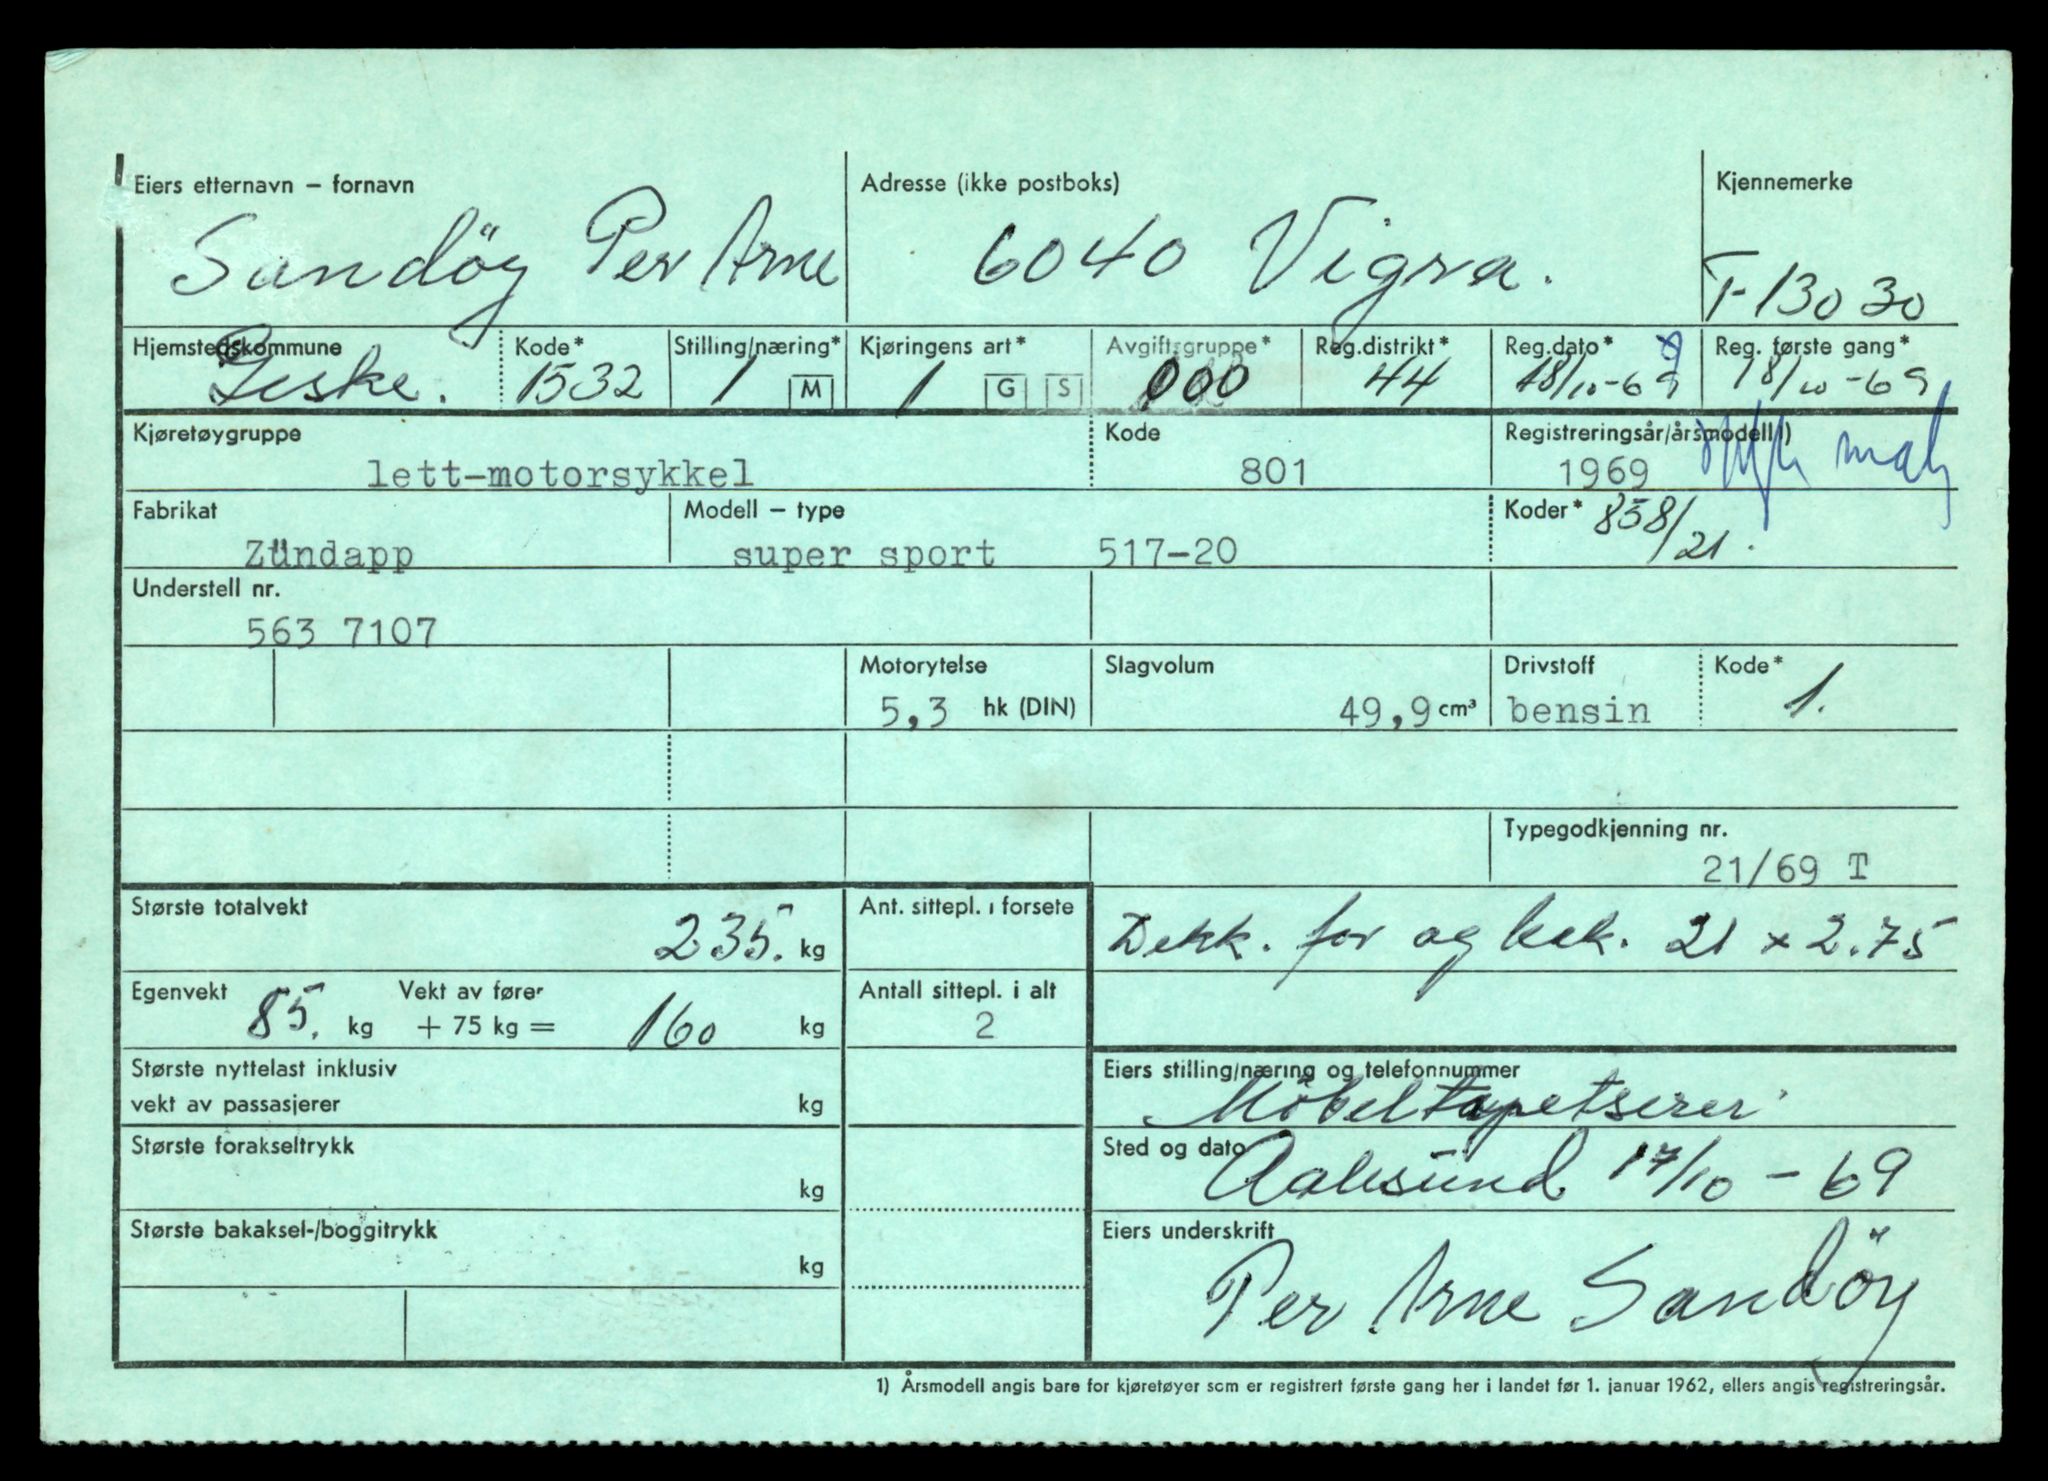 Eiers etternavn – fornavn
Sandöy Per Arne
Adresse (ikke postboks)
6040 Vigra.
Kjennemerke
T-13030
Hjemstedskommune
Giske.
Kode*
1532
Stilling/næring*
1 M
Kjøringens art*
1 G S
Avgiftsgruppe*
000
Reg.distrikt*
44
Reg.dato*
18/10-69
Reg. første gang*
18/10-69
Kjøretøygruppe
lett-motorsykkel
Kode
801
Registreringsår/årsmodell 1)
1969
Fabrikat
Zündapp
Modell – type
super sport 517-20
Koder* 858/21.
Understell nr.
563 7107
Motorytelse
5,3 hk (DIN)
Slagvolum
49,9 cm³
Drivstoff
bensin
Kode*
1.
Typegodkjenning nr.
21/69 T
Største totalvekt
235. kg
Ant. sittepl. i forsete
Dekk. for og bak. 21 x 2.75
Egenvekt
85. kg
Vekt av fører
+ 75 kg = 160 kg
Antall sittepl. i alt
2
Største nyttelast inklusiv
vekt av passasjerer kg
Eiers stilling/næring og telefonnummer
Möbeltapetserer
Største forakseltrykk
kg
Sted og dato
Aalesund 17/10-69
Største bakaksel-/boggitrykk
kg
Eiers underskrift
Per Arne Sandöy
1) Årsmodell angis bare for kjøretøyer som er registrert første gang her i landet før 1. januar 1962, ellers angis registreringsår.